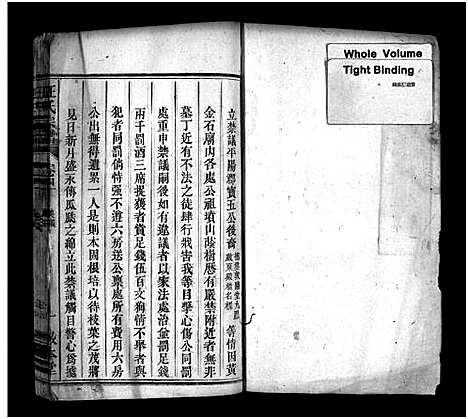 Whole Volume
Tight Binding
立禁議平陽郡寶五公後裔
等情因黃
金石廟山各處公祖墳山蔭樹歷有嚴禁附近者無非
墓丁近有不法之徒肆行戕害我等目擊心傷公同酌
處重申禁議嗣後如有違議者以家法處治金罰足錢
兩千罰酒三席捉獲者賞足錢伍百文狥情不舉與
犯者同罰倘恃强不遵六房送公稟處所有費用六房
公出無得遺累一人是則木固根培以待枝葉之茂將
見日新月盛永傳瓜瓞之綿立此禁議觸目警心爲據